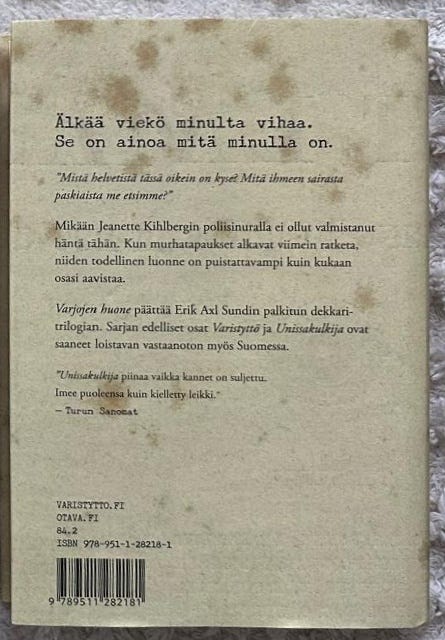 Älkää viekö minulta vihaa.
Se on ainoa mitä minulla on.
"Mistä helvetistä tässä oikein on kyse? Mitä ihmeen sairasta
paskiaista me etsimme?"
Mikään Jeanette Kihlbergin poliisinuralla ei ollut valmistanut
häntä tähän. Kun murhatapaukset alkavat viimein ratketa,
niiden todellinen luonne on puistattavampi kuin kukaan
osasi aavistaa.
Varjojen huone päättää Erik Axl Sundin palkitun dekkari-
trilogian. Sarjan edelliset osat Varistyttö ja Unissakulkija ovat
saaneet loistavan vastaanoton myös Suomessa.
"Unissakulkija piinaa vaikka kannet on suljettu.
Imee puoleensa kuin kielletty leikki."
— Turun Sanomat
VARISTYTTO.FI
OTAVA.FI
84.2
ISBN 978-951-1-28218-1
9 789511 282181